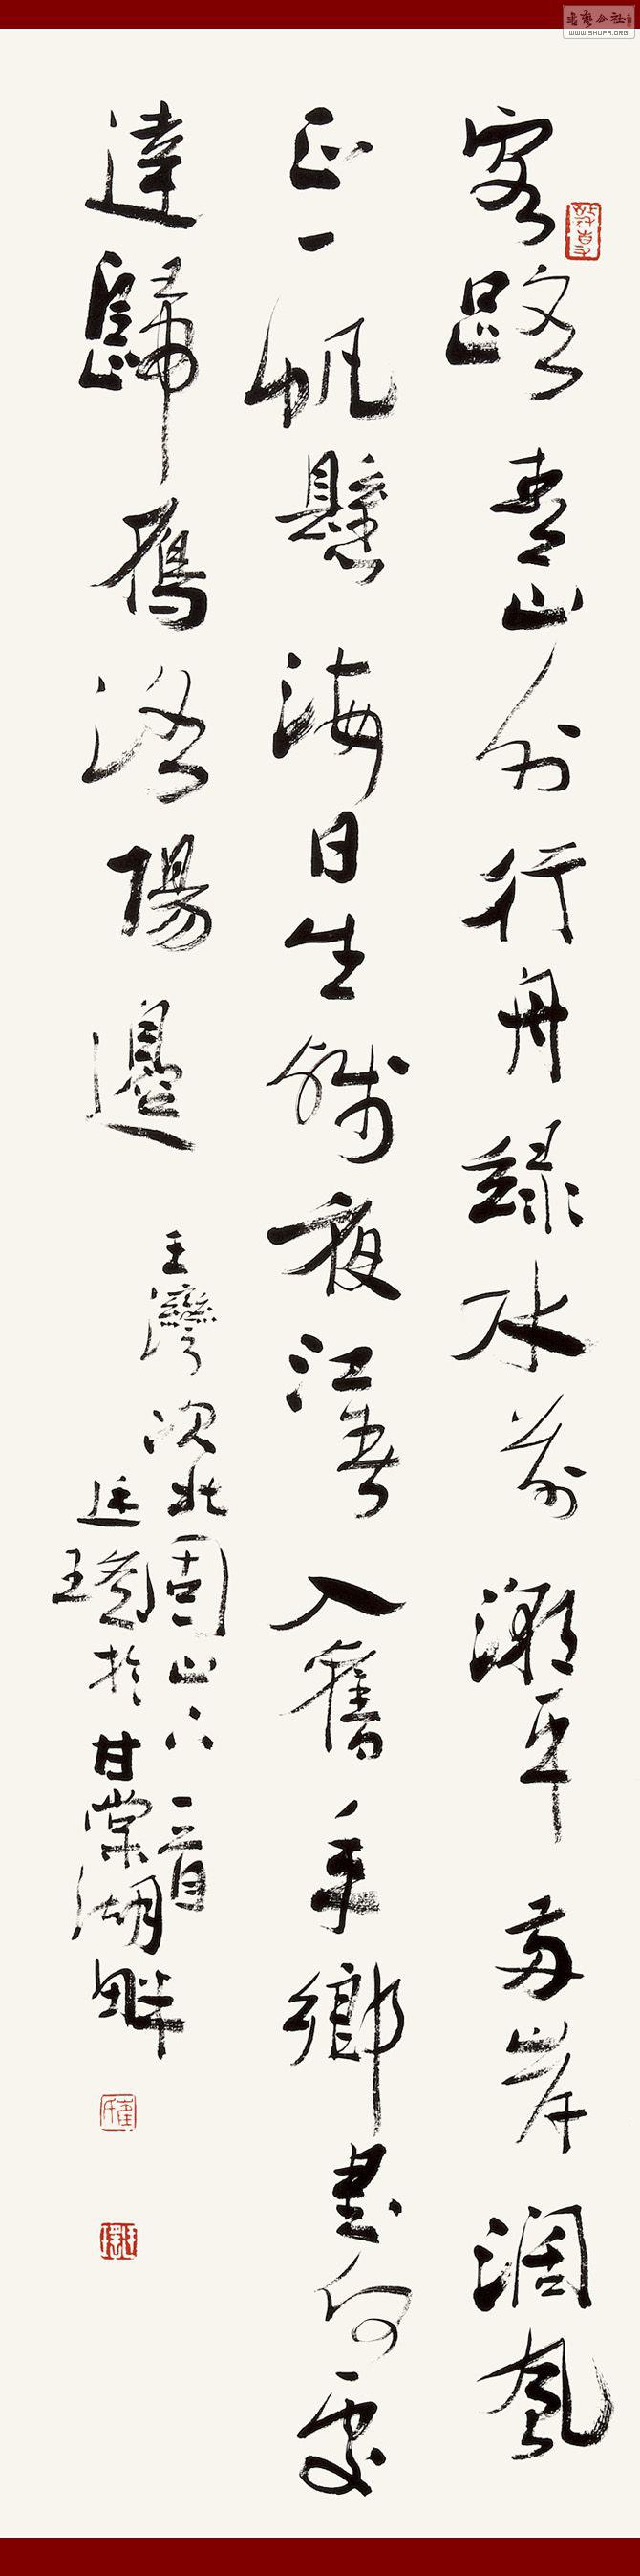 客路青山外行舟綠水前潮平兩岸濶風
正一帆懸海日生殘夜江春入舊年鄉書何處
達歸鴈洛陽邊
王灣次北固山下一首
廷於甘棠湖畔
WWW.SHUFA.ORG